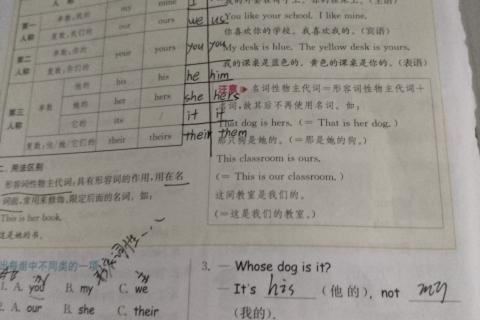 单数:我的 my mine I
第一人称 复数:我们的 our ours we us
第二人称 单数:你的 your yours you you
复数:你们的
他的 his his he him
第三人称 单数 她的 her hers she hers
它的 its / it it
复数:他/她/它们的 their theirs their them
You like your school. I like mine.
你喜欢你的学校，我喜欢我的。(宾语)
My desk is blue. The yellow desk is yours.
我的课桌是蓝色的，黄色的课桌是你的。(表语)
注意 名词性物主代词=形容词性物主代词+
名词,故其后不再使用名词。如:
That dog is hers. (= That is her dog.)
那只狗是她的。(=那是她的狗。)
This classroom is ours.
(= This is our classroom.)
这间教室是我们的。
(=这是我们的教室。)
二、用法区别
形容词性物主代词:具有形容词的作用,用在名
词前,常用来修饰、限定后面的名词。如:
This is her book.
这是她的书。
出每组中不同类的一项
形容词性
1. A. you B. my C. we
2. A. our B. she C. their
3. — Whose dog is it?
— It's his (他的), not my
(我的).